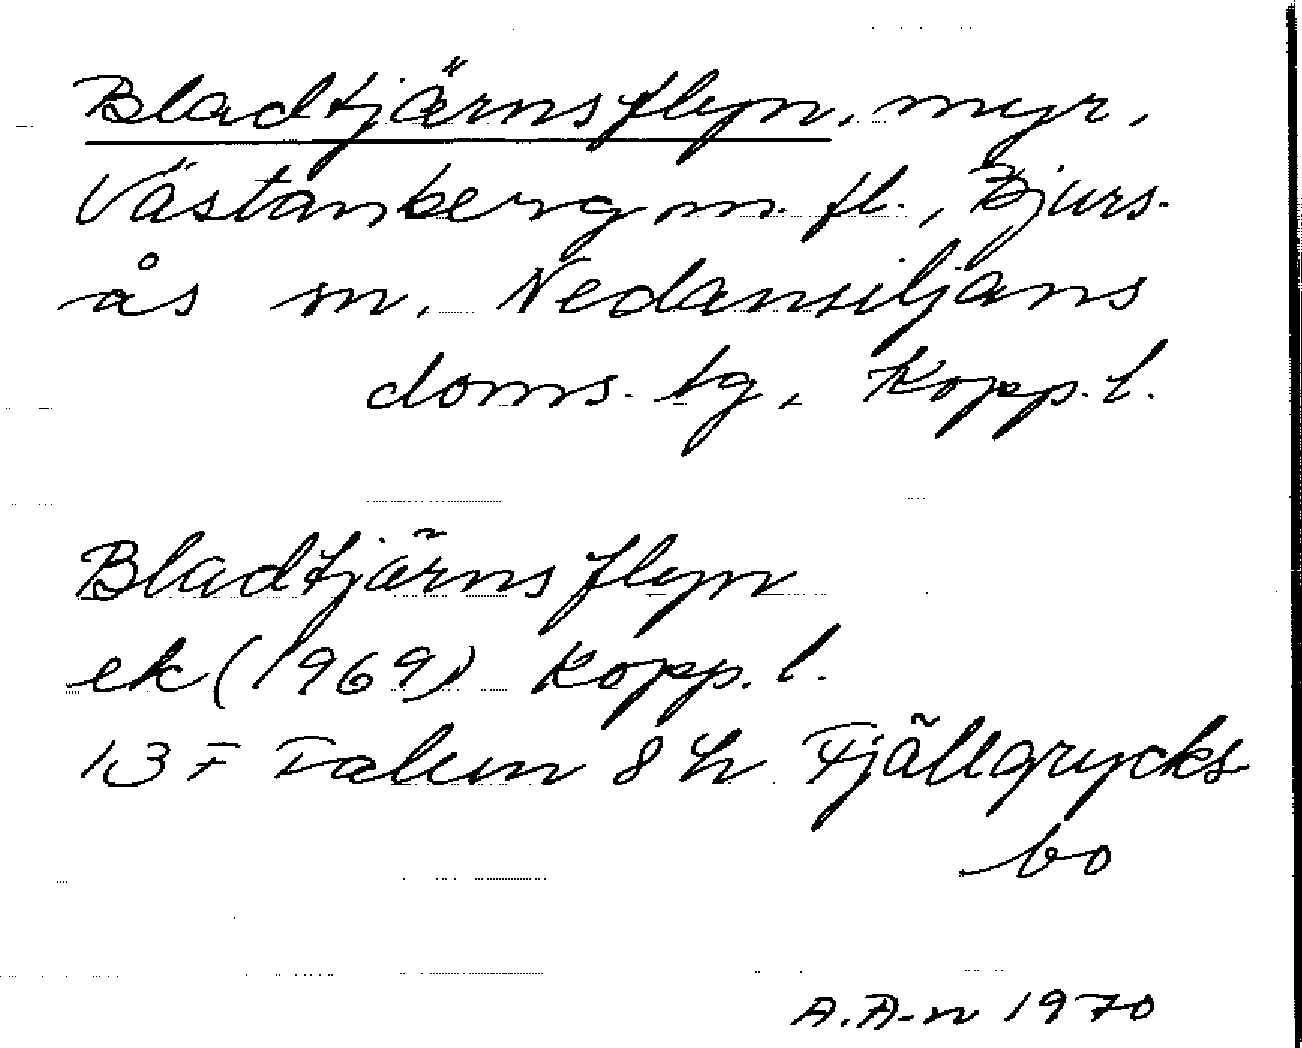 Bladtjärnsflyn, myr,
Västanberg m. fl., Bjurs-
ås sn, Nedansiljans
doms. tg, Kopp. l.
Bladtjärnsflyn
ek (1969) Kopp. l.
13 F Falun 8 h Fjällgrycks-
bo
A.A-n 1970